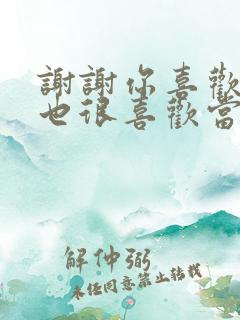 謝謝你喜歡
也很喜歡當
解仲弼
未经同意禁止转载